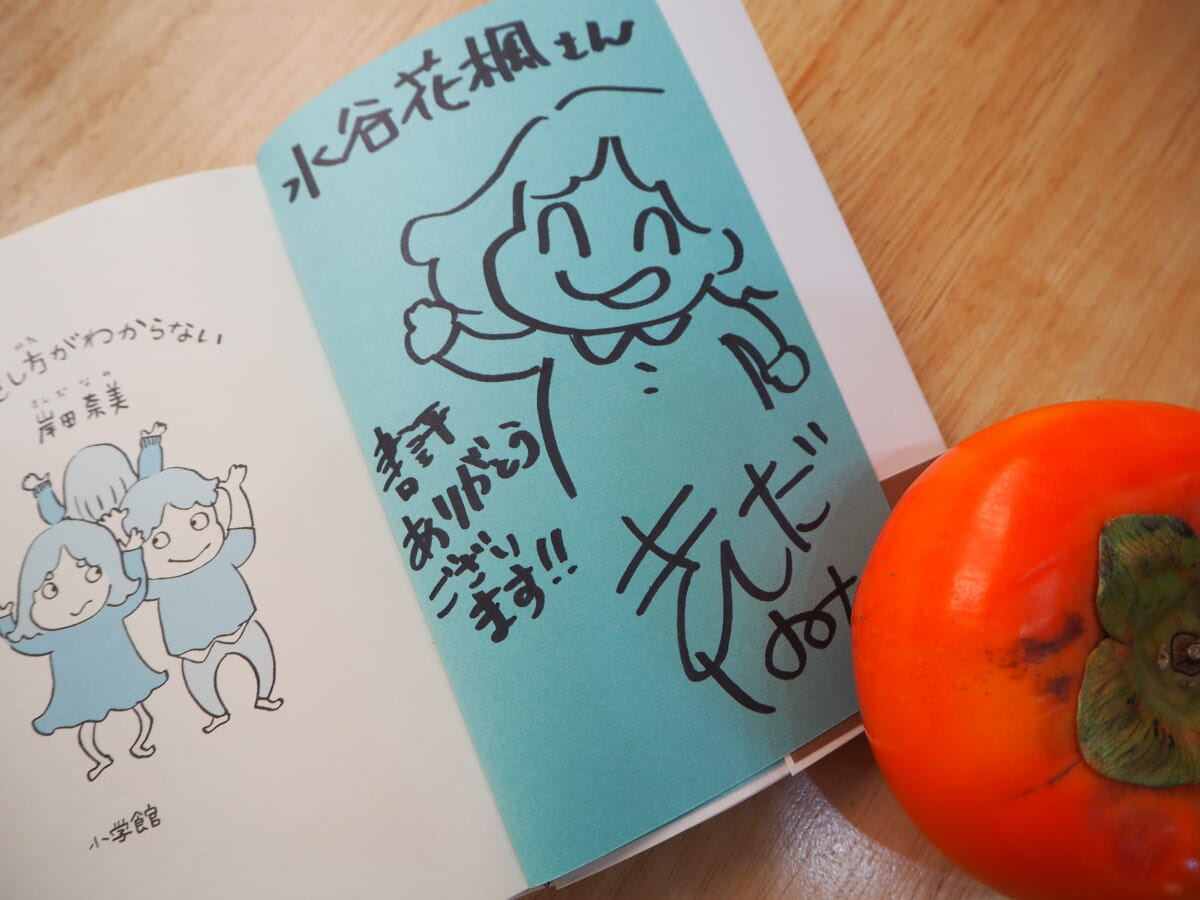 し方がわからない
かた
きしだ なみ
岸田 奈美
小学館
水谷花楓さん
書評
ありがとう
ござい
ます!!
きしだ
なみ